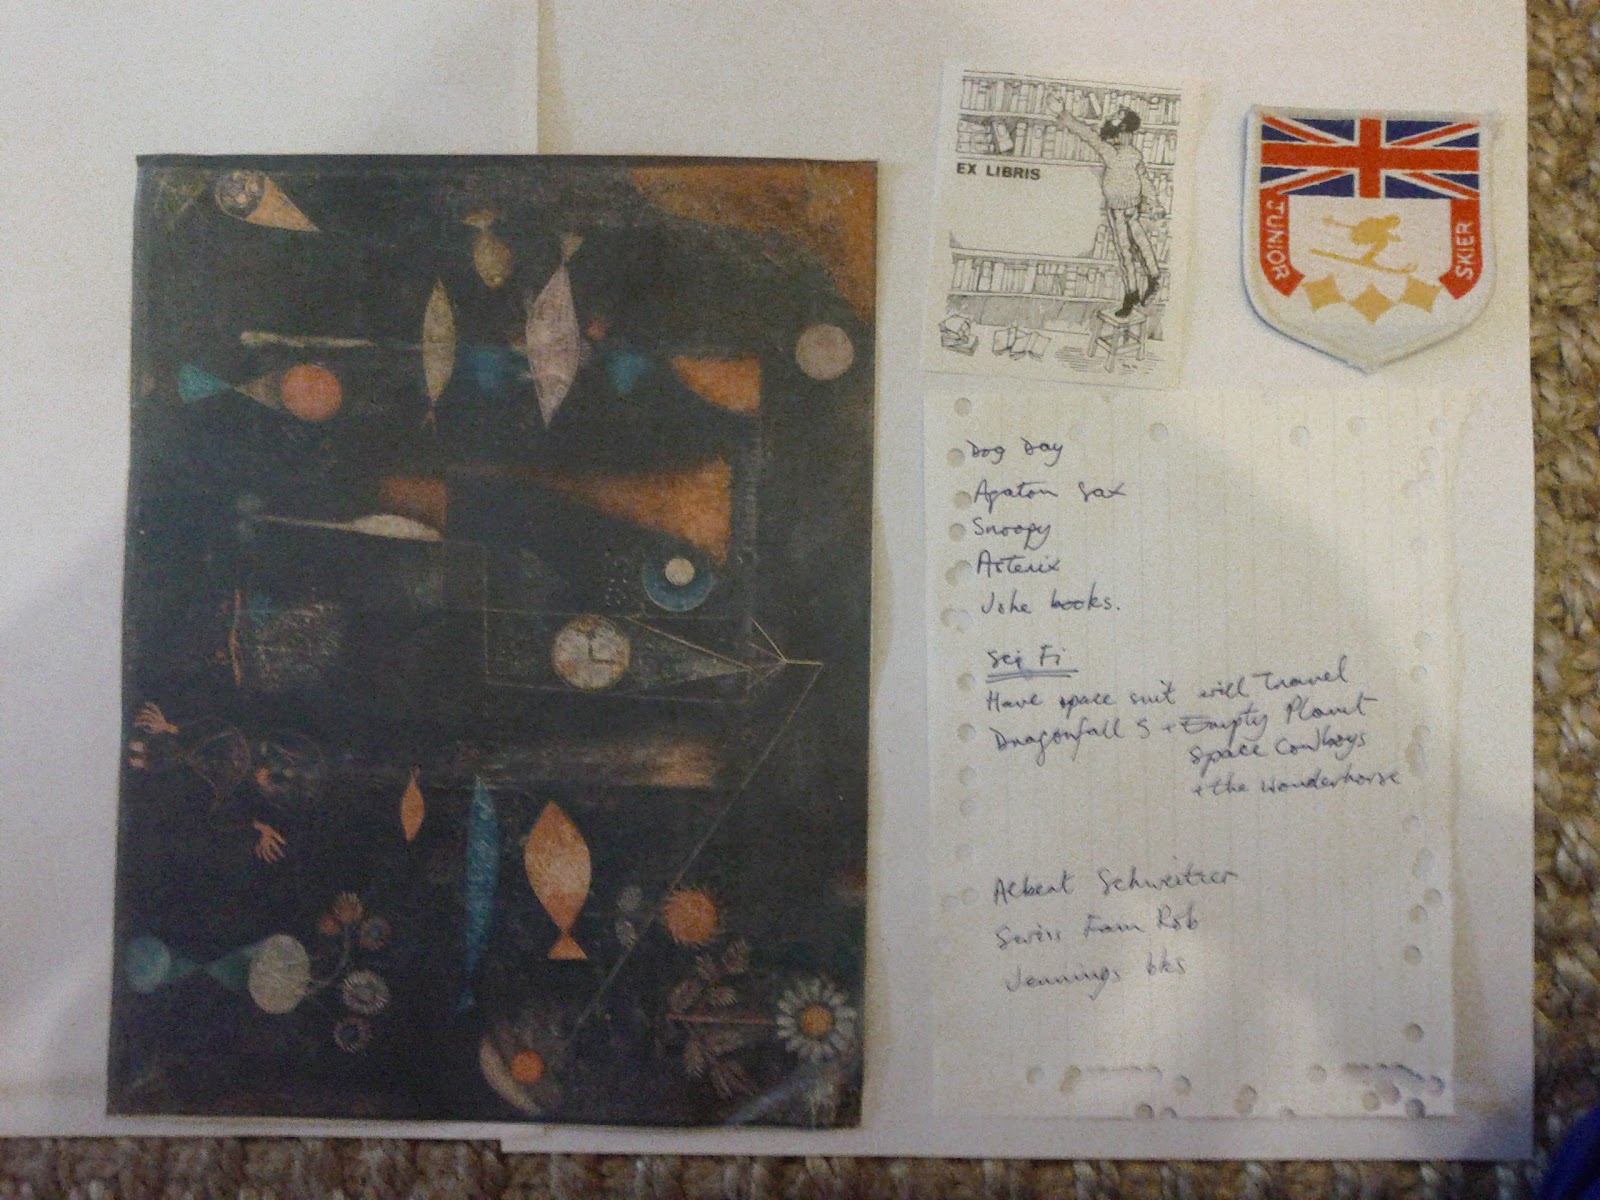 EX LIBRIS
JUNIOR SKIER
Dog Day
Agaton Sax
Snoopy
Asterix
Joke books.
Sci Fi
Have space suit will Travel
Dragonfall 5 + Empty Planet
Space Cowboys
+ the Wonderhorse
Albert Schweitzer
Swiss Fam Rob
Jennings bks